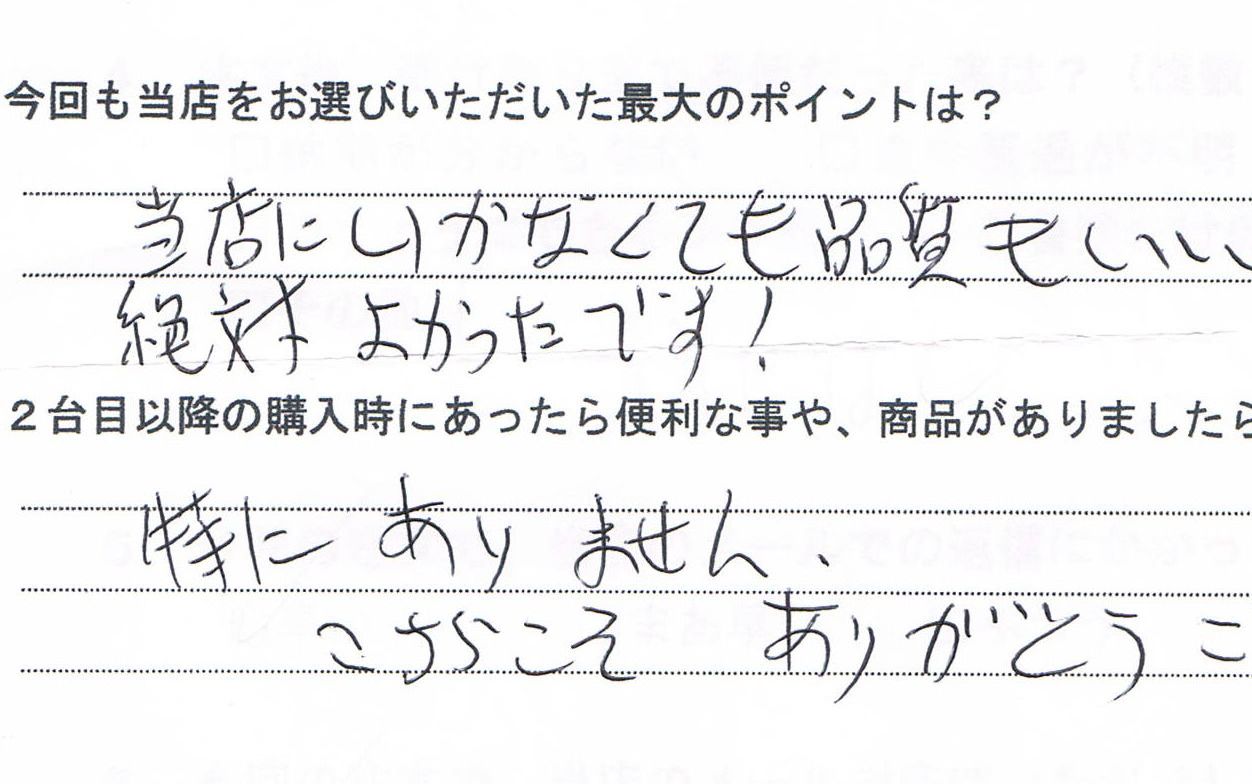 今回も当店をお選びいただいた最大のポイントは？
当店にいかなくても品質もいい、
絶対よかったです！
２台目以降の購入時にあったら便利な事や、商品がありましたら
特にありません、
こちらこそ ありがとうご